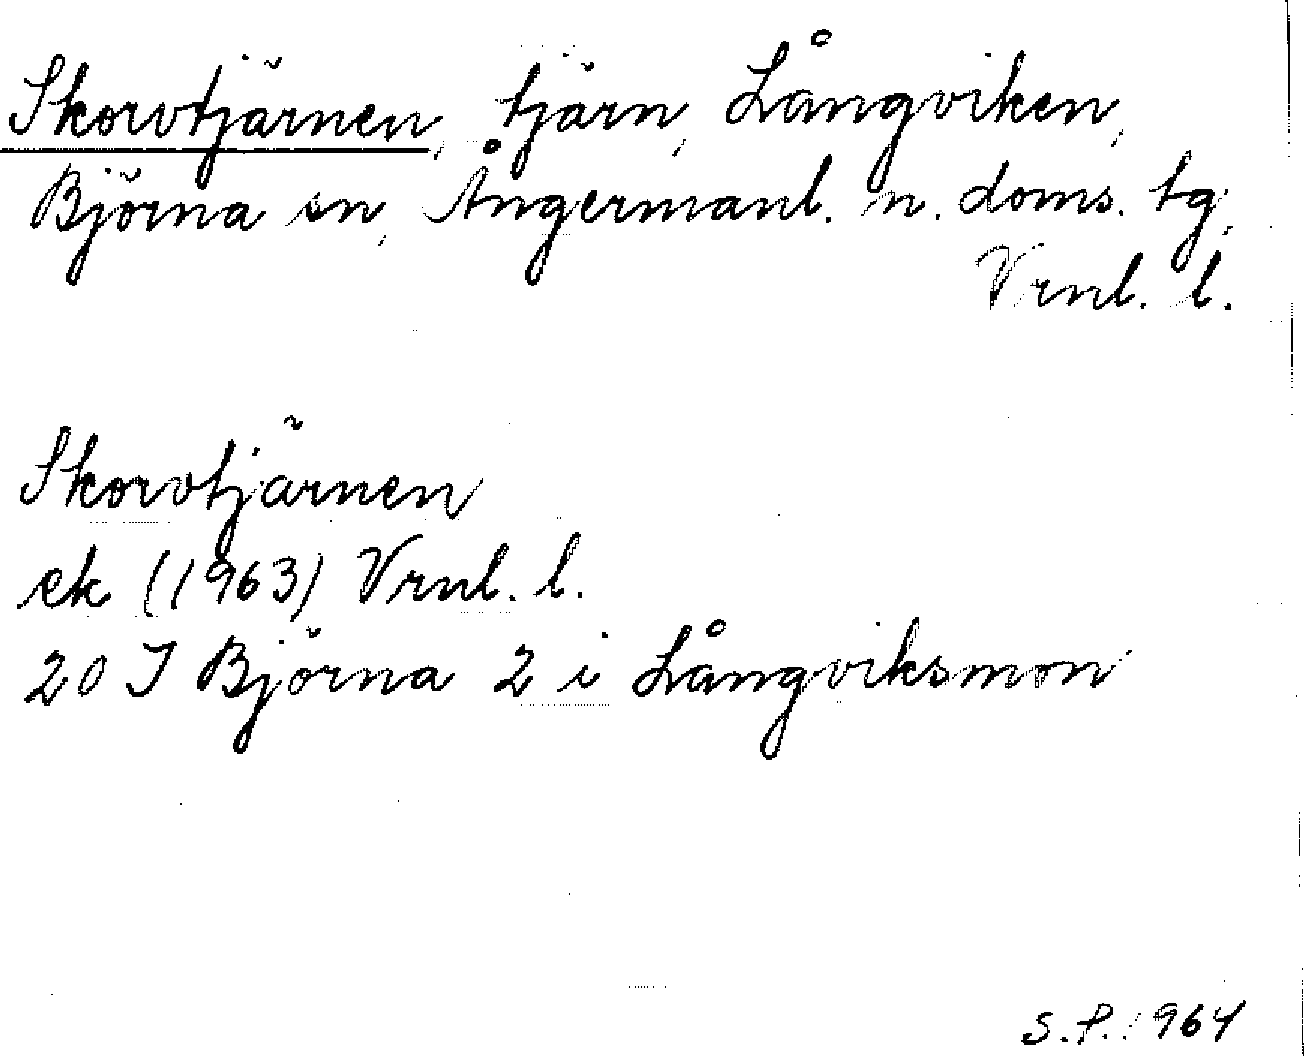 Skorvtjärnen, tjärn, Långviken,
Björna sn, Ångermanl. n. doms. tg,
Vrnl. l.
Skorvtjärnen
ek (1963) Vrnl. l.
20 I Björna 2 i Långviksmon
S.P. 1964